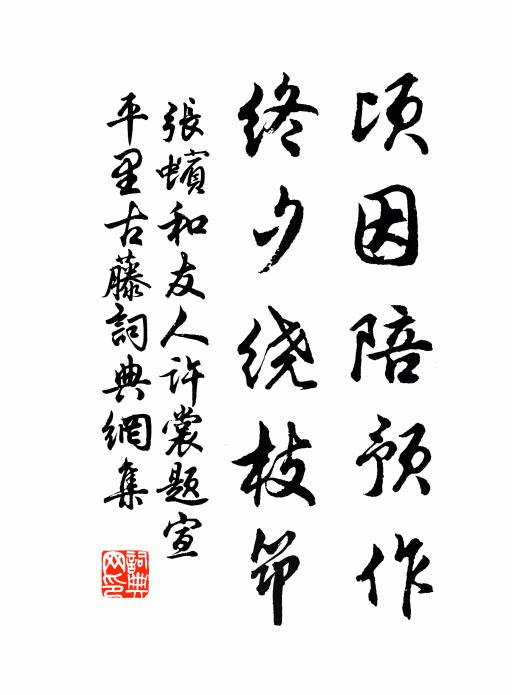 顷因陪预作
终夕绕枝筇
張蠙和友人许裳题宣
平里古藤詞典網集
詞典
网印